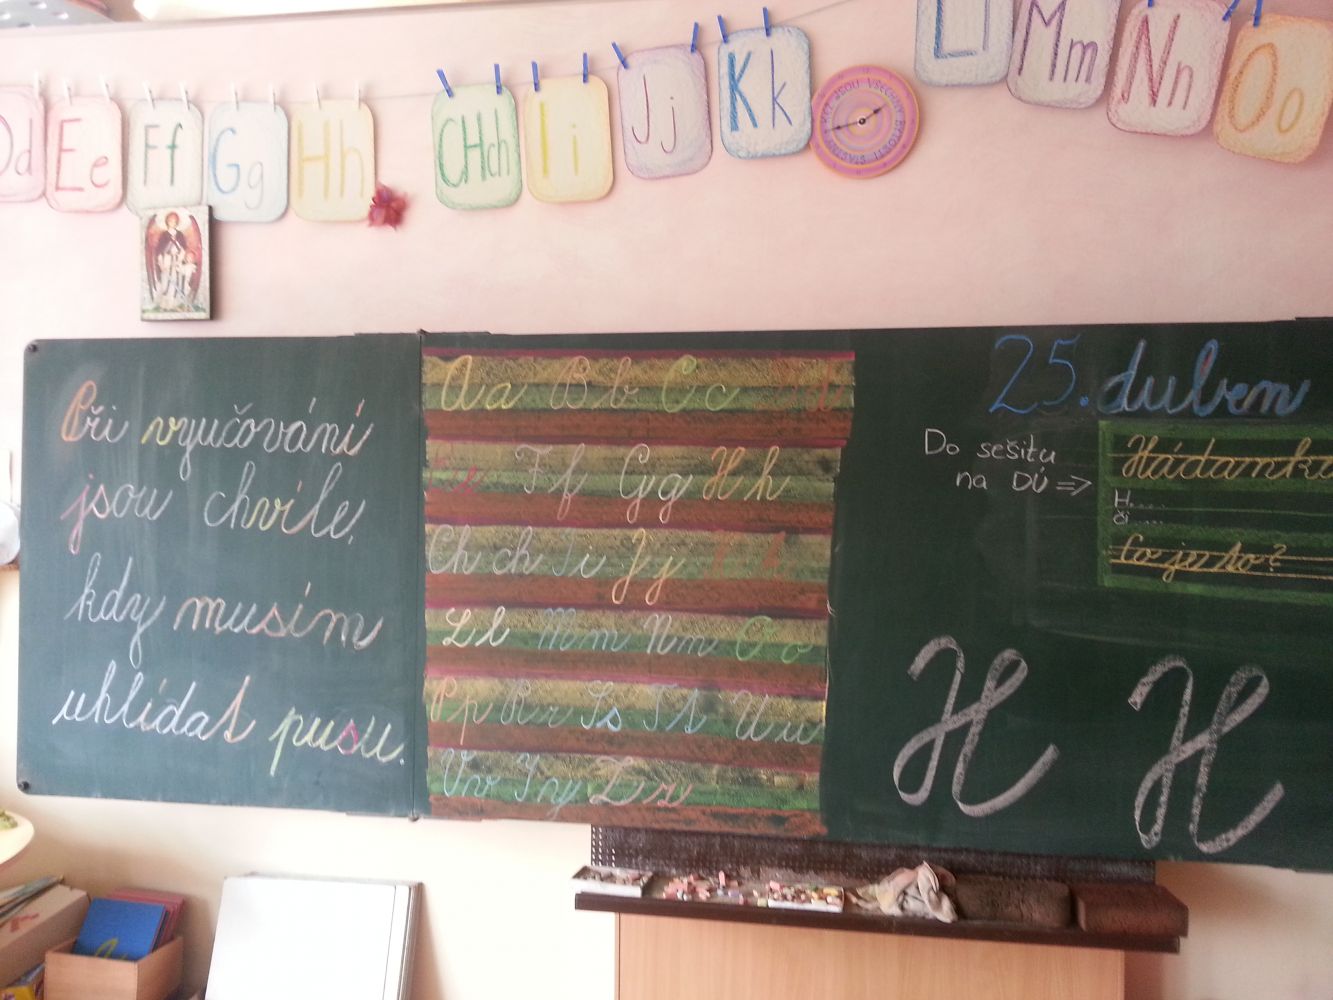 Dd Ee Ff Gg Hh CHch Ii Jj Kk L Mm Nn Oo
Při vyučování
jsou chvíle,
kdy musím
uhlídat pusu.
Aa Bb Cc Dd
Ee Ff Gg Hh
Ch ch Ii Jj Kk
Ll Mm Nn Oo
Pp Rr Ss Tt Uu
Vv Yy Zz
25. duben
Do sešitu
na DÚ =>
Hádanka
H.....
Či.....
Co je to?
H H